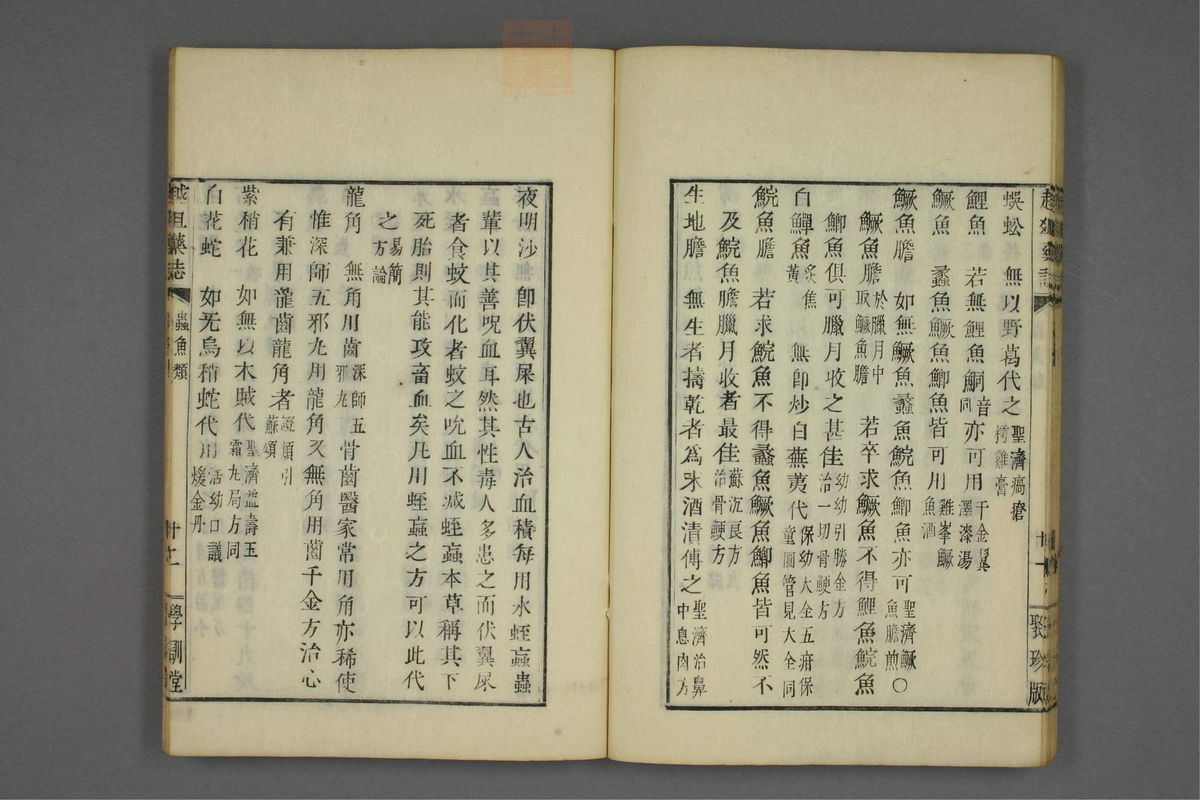 蜈蚣　無以野葛代之聖濟瘑瘡樗雞膏
鯉魚　若無鯉魚鮦音同亦可用千金鬒澤漆湯
鱖魚　蠡魚鱖魚鯽魚皆可用雞峯鱖魚酒
鱖魚膽　如無鱖魚蠡魚鯇魚鯽魚亦可聖濟鱖魚膽煎〇
鱖魚膽於臘月中取鱖魚膽　若卒求鱖魚不得鯉魚鯇魚
鯽魚俱可臘月收之甚佳幼幼引勝金方治一切骨鯁方
白鱓魚炙焦黃　無卽炒白蕪荑代保幼大全五疳保童圓管見大全同
鯇魚膽　若求鯇魚不得蠡魚鱖魚鯽魚皆可然不
及鯇魚膽臘月收者最佳蘇沉良方治骨鯁方
生地膽　無生者擣乾者爲末酒漬傅之聖濟治鼻中息肉方
聚珍版
夜明沙無卽伏翼屎也古人治血積每用水蛭蝱蟲
輩以其善吮血耳然其性毒人多患之而伏翼屎
者食蚊而化者蚊之吮血不减蛭蝱本草稱其下
死胎則其能攻畜血矣凡用蛭蝱之方可以此代
之易簡方論
龍角　無角用齒深師五邪丸骨齒醫家常用角亦稀使
惟深師五邪丸用龍角又無角用齒千金方治心
有兼用龍齒龍角者證類引蘇頌
紫稍花　如無以木賊代聖濟益壽玉霜丸局方同
白花蛇　如无烏稍蛇代用活幼口議煖金丹
蟲魚類
十二
學訓堂